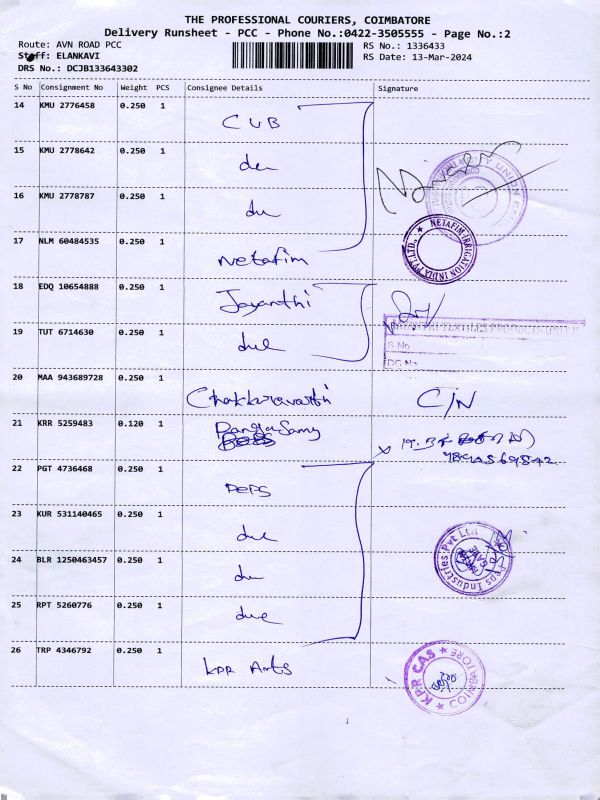 THE PROFESSIONAL COURIERS, COIMBATORE
Delivery Runsheet - PCC - Phone No.:0422-3505555 - Page No.:2
Route: AVN ROAD PCC
RS No.: 1336433
Staff: ELANKAVI
RS Date: 13-Mar-2024
DRS No.: DCJB133643302
S No Consignment No Weight PCS Consignee Details Signature
14 KMU 2776458 0.250 1 CUB
15 KMU 2778642 0.250 1
16 KMU 2778787 0.250 1
17 NLM 60484535 0.250 1 Netafim
NETAFIM IRRIGATION INDIA PVT LTD.,
18 EDQ 10654888 0.250 1 Jayanthi
19 TUT 6714630 0.250 1
S No
DC No
20 MAA 943689728 0.250 1 Chakkaravarthi C/N
21 KRR 5259483 0.120 1 RangaSamy
22 PGT 4736468 0.250 1 PEPS
23 KUR 531140465 0.250 1
24 BLR 1250463457 0.250 1
Peps Industries Pvt Ltd
25 RPT 5260776 0.250 1
26 TRP 4346792 0.250 1 KPR Arts
KPR CAS COIMBATORE